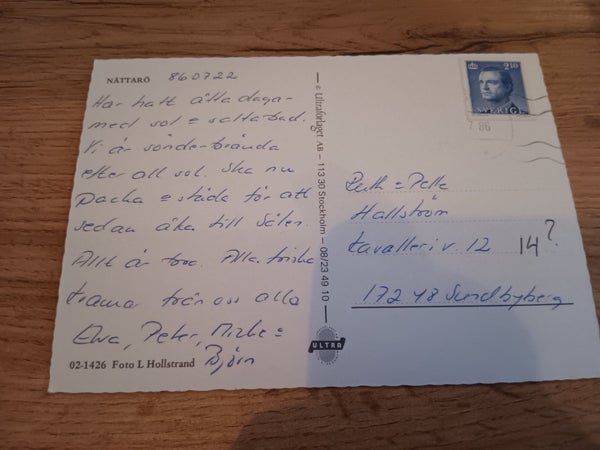 NÅTTARÖ 860722
Har haft åtta dagar
med sol = saltabad.
Vi är sönderbrända
efter all sol. Ska nu
packa = städa för att
sedan åka till Sälen.
Allt är bra. Alla friska
kramar från oss alla
Ewa, Peter, Micke =
Björn
02-1426 Foto L Hollstrand
© Ultraförlaget AB – 113 30 Stockholm – 08/23 49 10
ULTRA
2.10
SVERIGE
86
= Pelle
Hallström
Kavalleriv. 12 14?
172 48 Sundbyberg